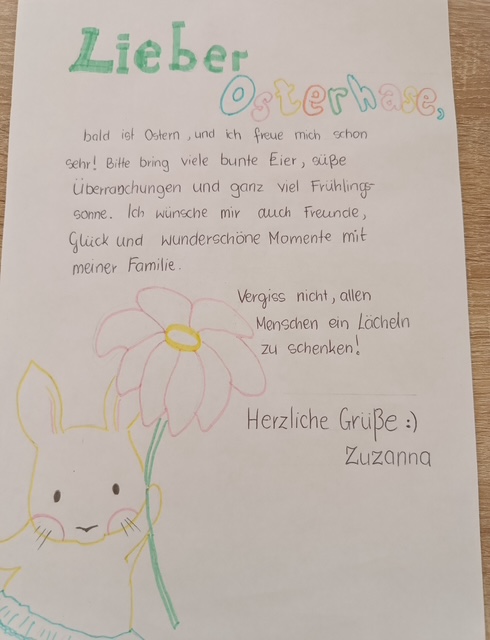 Lieber
Osterhase,
bald ist Ostern, und ich freue mich schon
sehr! Bitte bring viele bunte Eier, süße
Überraschungen und ganz viel Frühlings-
sonne. Ich wünsche mir auch Freunde,
Glück und wunderschöne Momente mit
meiner Familie.
Vergiss nicht, allen
Menschen ein Lächeln
zu schenken!
Herzliche Grüße :)
Zuzanna